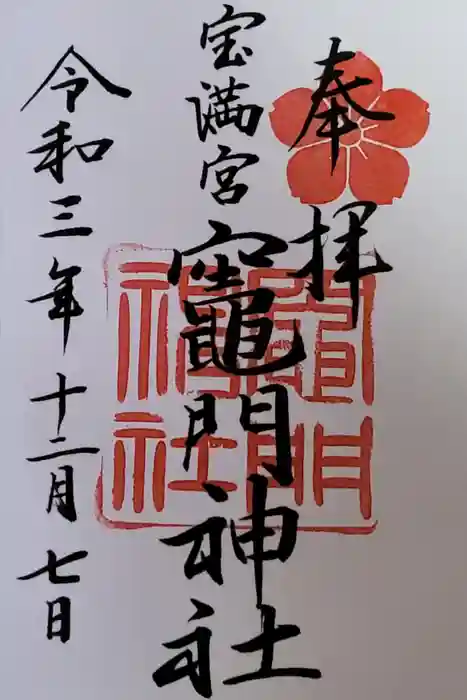 奉拝
宝満宮
竈門神社
令和三年十二月七日
竈門神社